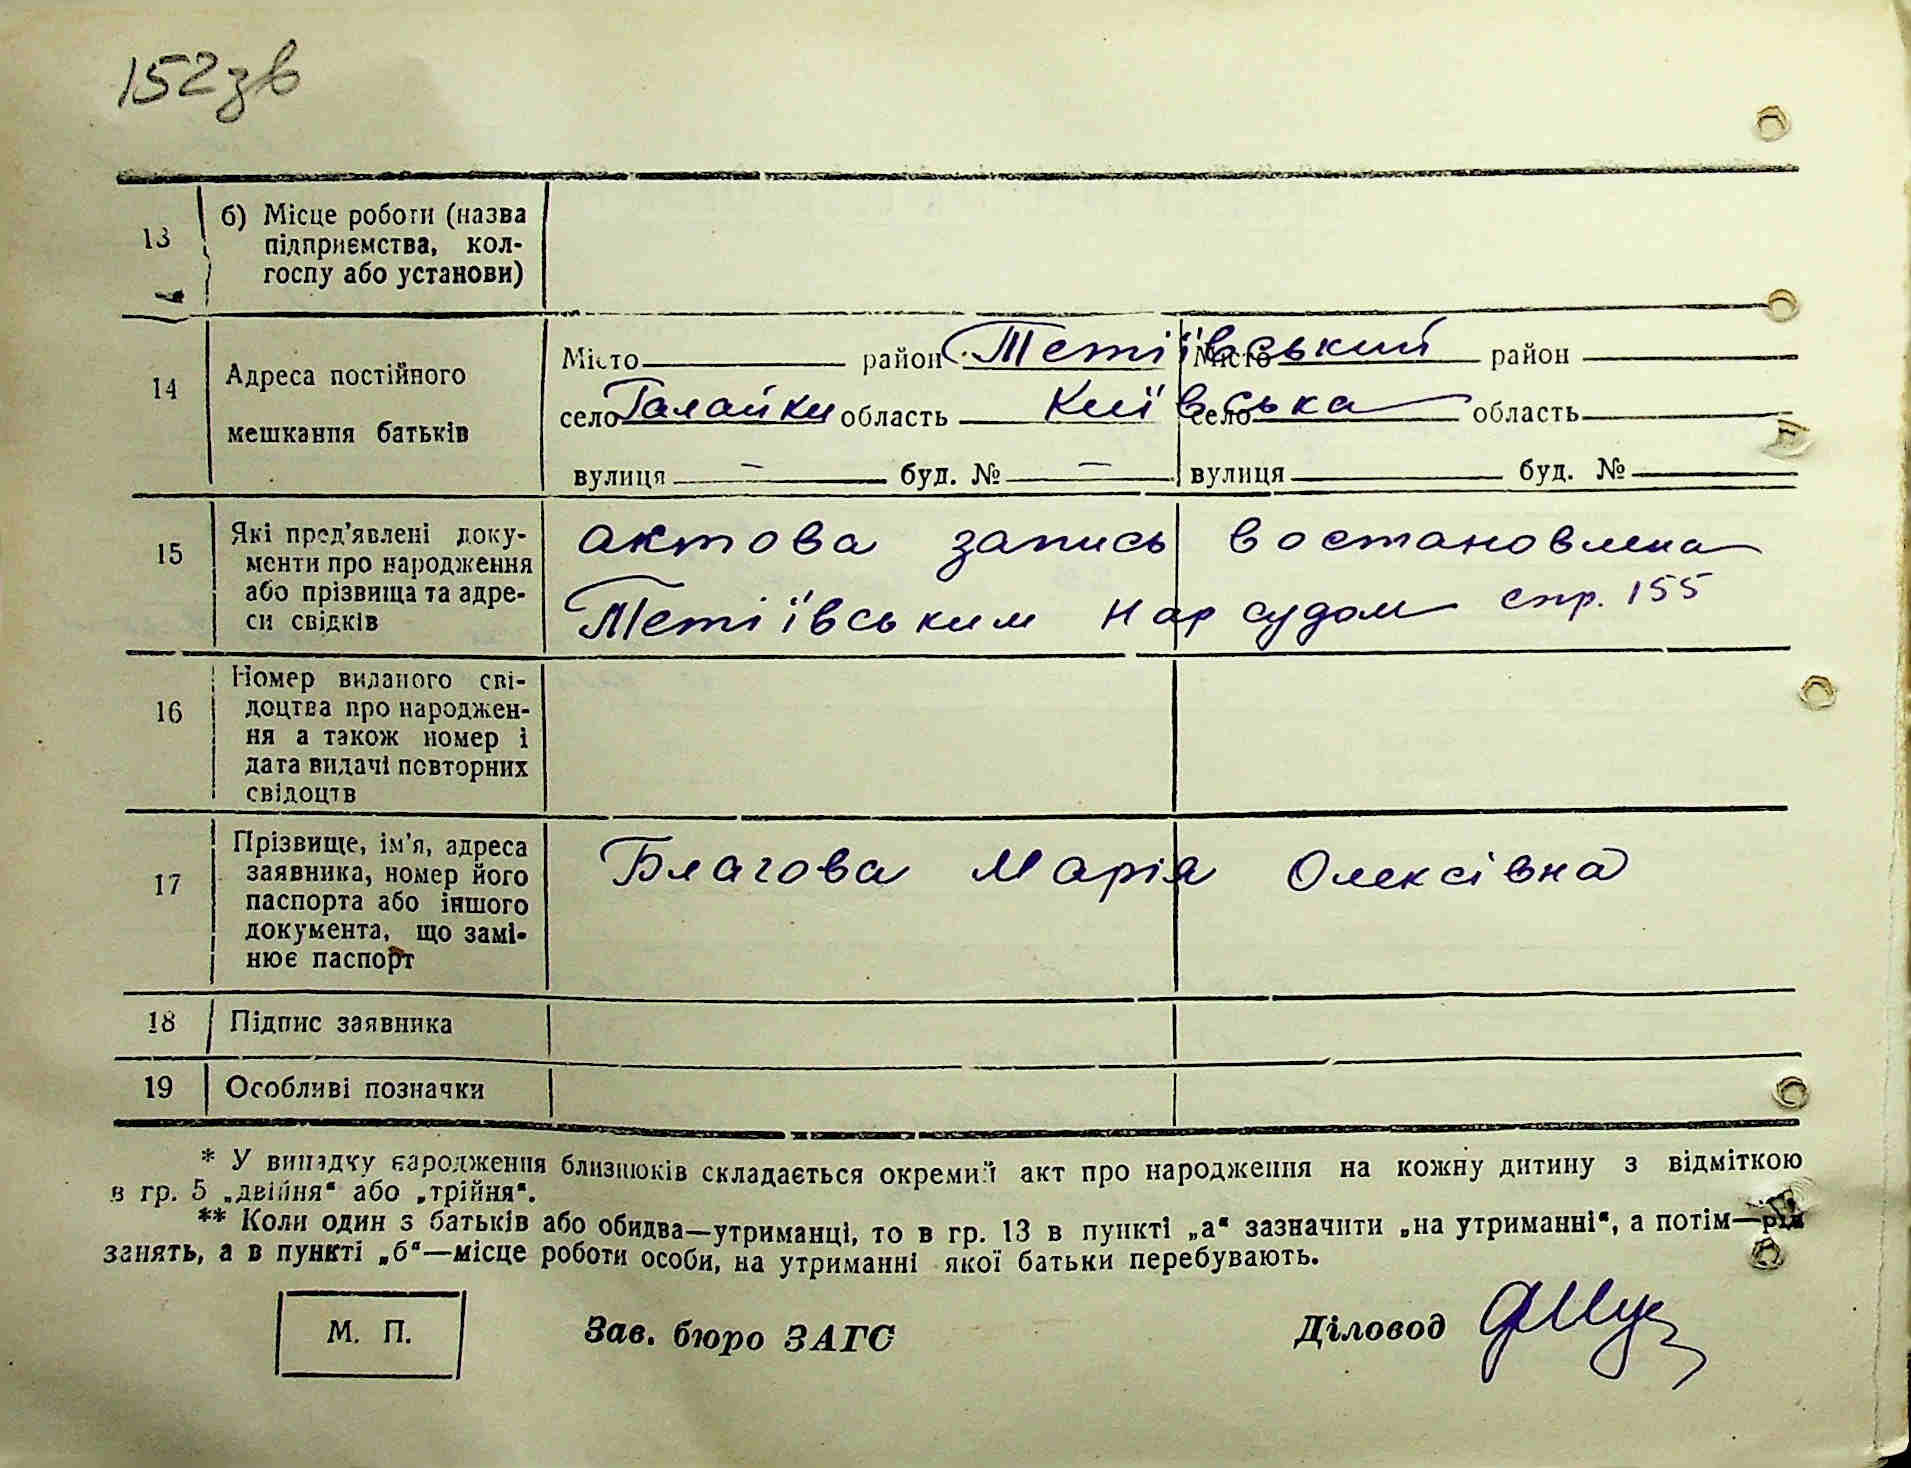 152зв
13 б) Місце роботи (назва
підприємства, кол-
госпу або установи)
14 Адреса постійного
мешкання батьків
Місто район Тетіївський Місто район
село Галайки область Київська село область
вулиця – буд. № – вулиця буд. №
15 Які пред'явлені доку-
менти про народження
або прізвища та адре-
си свідків
актова запись востановлена
Тетіївським Нар судом стр. 155
16 Номер виданого сві-
доцтва про народжен-
ня а також номер і
дата видачі повторних
свідоцтв
17 Прізвище, ім'я, адреса
заявника, номер його
паспорта або іншого
документа, що замі-
нює паспорт
Благова Марія Олексівна
18 Підпис заявника
19 Особливі позначки
* У випадку народження близнюків складається окремий акт про народження на кожну дитину з відміткою
в гр. 5 „двійня“ або „трійня“.
** Коли один з батьків або обидва—утриманці, то в гр. 13 в пункті „а“ зазначити „на утриманні“, а потім—рід
занять, а в пункті „б“—місце роботи особи, на утриманні якої батьки перебувають.
М. П. Зав. бюро ЗАГС Діловод